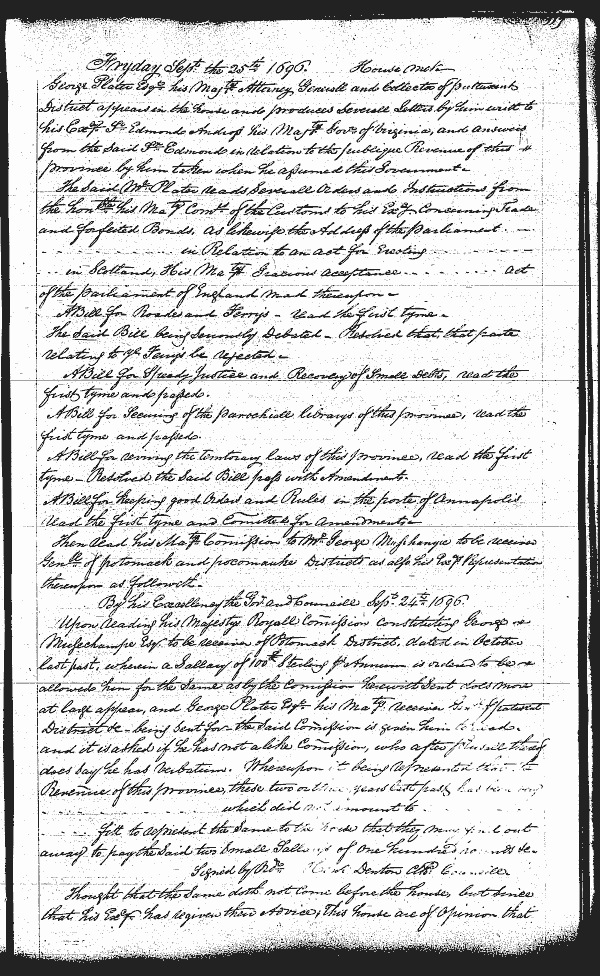 Fryday Sept. the 25th 1696. House mett
George Plater Esqr. his Majtys Attorney Generall and Collector of putuxent
District appears in the house and produces Severall Letters by him writt to
his Exy. Sr. Edmond Andros his Majtys Govr. of Virginia, and answers
from the said Sr. Edmond in relation to the publique Revenue of this
province by him taken when he assumed this Government
The Said Mr. Plater reads Severall Orders and Instructions from
the honble his Matys Comrs. of the Customs to his Exy. Concerning Trade
and forfeited Bonds, as likewise the Address of the Parliament
in Relation to an act for Erecting
in Scotland, His Matys Gracious acceptance act
of the Parliament of England made thereupon
A Bill for Roades and Ferrys - read the first tyme
The said Bill being seriously Debated - Resolved that that parte
relating to ye Ferrys be rejected
A Bill for Speedy Justice and Recovery of Small Debts, read the
first tyme and passed.
A Bill for Securing of the parochiall librarys of this province, read the
first tyme and passed.
A Bill for reviving the temporary laws of this Province, read the first
tyme - Resolved the Said Bill pass with Amendment.
A Bill for keeping good Orders and Rules in the porte of Annapolis
read the first tyme and Comitted for amendments
Then read his Matys Comission to Mr. George Muschampe to be receiver
Genll. of potomack and pocomoke Districts as also his Exys Representation
thereupon as followeth
By his Excellency the Govr. and Councill Sept. 24th 1696.
Upon reading his Majestys Royall Comission constituting George
Muschampe Esqr. to be receiver of Potomack District, dated in October
last past, wherein a Sallary of 100lb Sterling p Annum is ordered to be
allowed him for the Same as by the Comission herewith Sent does more
at large appear, and George Plater Esqr. his Matys receiver of putuxent
District &c - being sent for the Said Comission is given him to read.
and it is asked if he has not a like Comission, who after perusall thereof
does say he has verbatim. Whereupon it being represented that the
Revenue of this province, these two or three years last past has been very
which did not amount to
fitt to represent the Same to the house that they may find out
away to pay the Said two Small Sallarys of one hundred pounds &c
Signed by Henry Denton Councill
Thought that the Same doth not come before the house, but since
that his Exy. has required their Advice, this house are of Opinion that